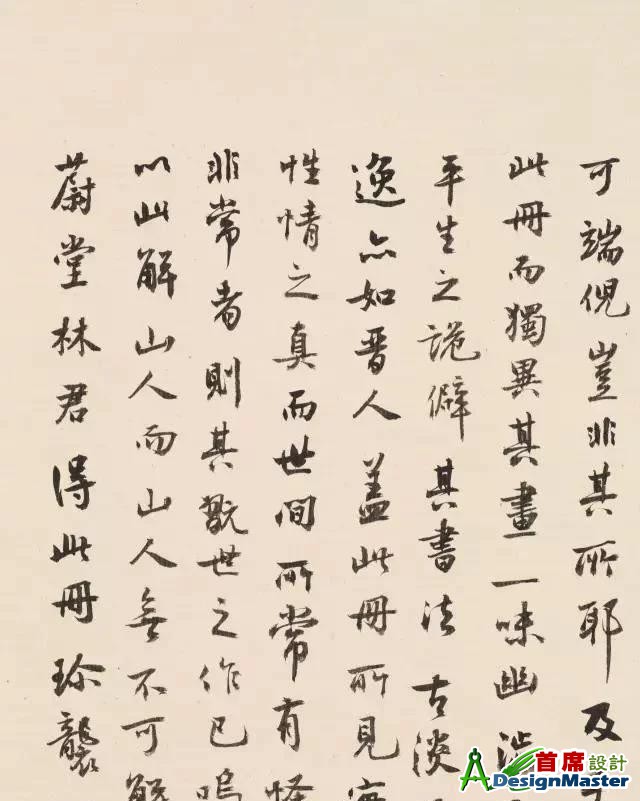 可端倪豈非其所耶及
此冊而獨異其畫一味幽澁
平生之詭僻其書法古淡
逸亦如晋人蓋此冊所見
性情之真而世間所常有怪
非常者則其翫世之作已嗚
以此解山人而山人無不可解
蔚堂林君得此冊珍襲
首席設計
ADesignMaster